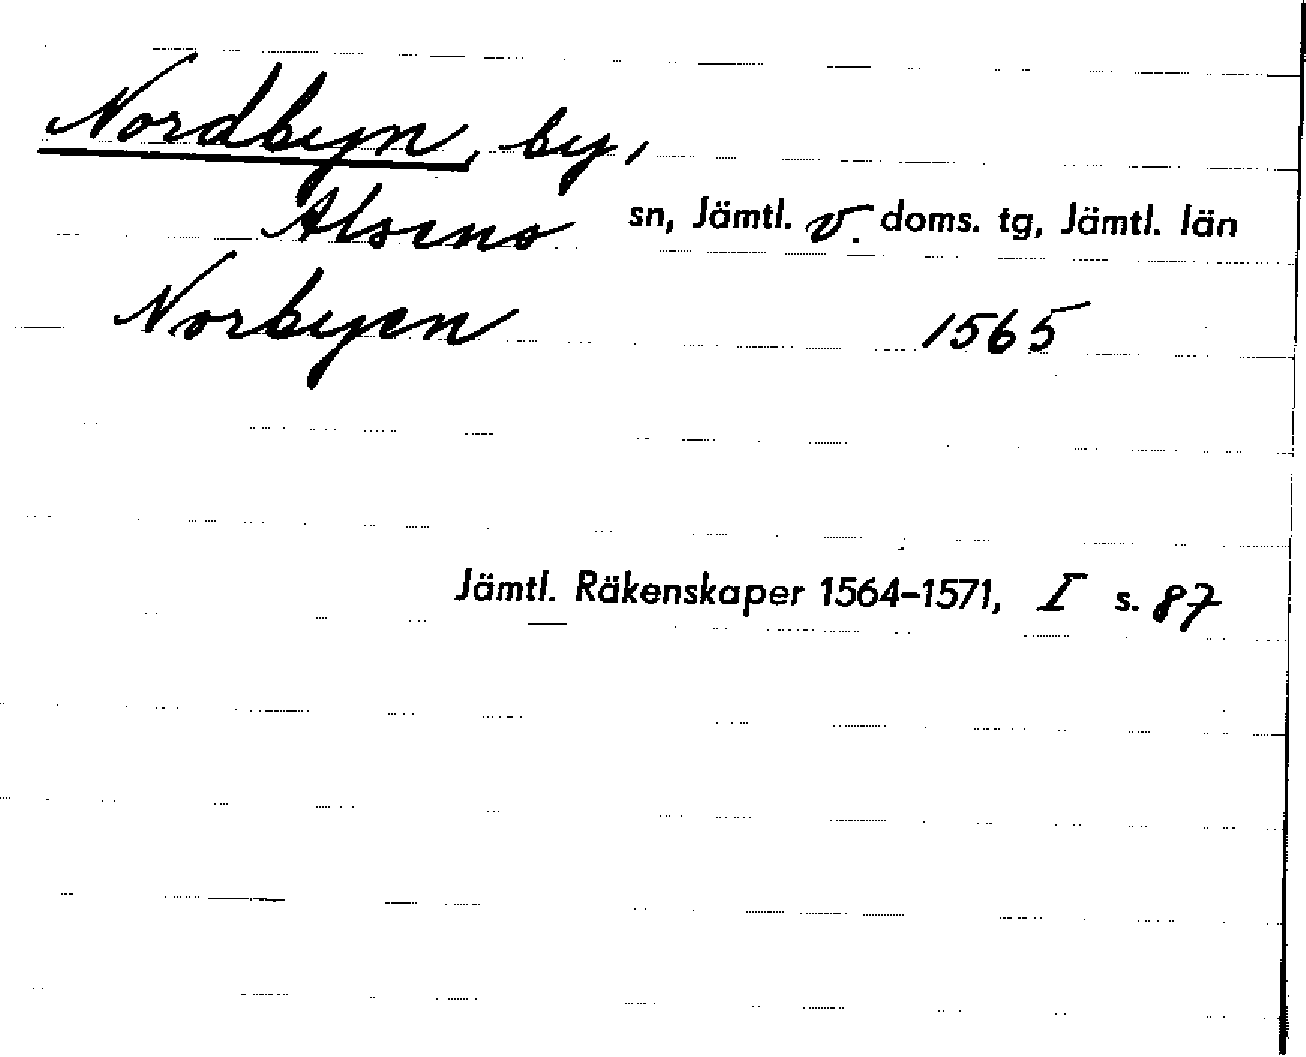 Nordbyn, by,
Alsens sn, Jämtl. v. doms. tg, Jämtl. län
Norbyen 1565
Jämtl. Räkenskaper 1564-1571, I s. 87